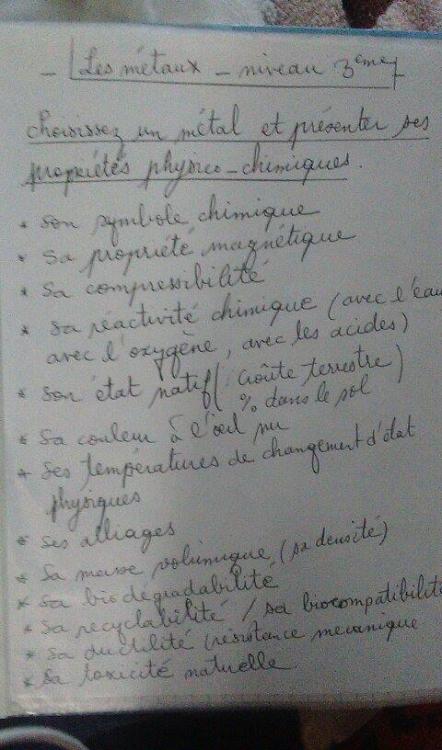 - Les métaux - niveau 3ème
choisissez un métal et présenter ses
propriétés physico-chimiques.
* son symbole chimique
* sa propriété magnétique
* sa compressibilité
* sa réactivité chimique (avec l'eau
avec l'oxygène, avec les acides)
* son état natif (croûte terrestre)
% dans le sol
* sa couleur à l'œil nu
* ses températures de changement d'état
physiques
* ses alliages
* sa masse volumique (sa densité)
* sa biodégradabilité
* sa recyclabilité / sa biocompatibilité
* sa ductilité (résistance mecanique
* sa toxicité naturelle